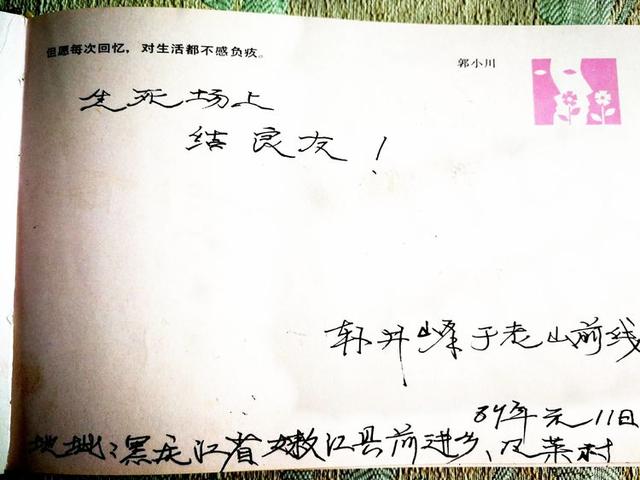 但愿每次回忆，对生活都不感负疚。
郭小川
生死场上
结良友！
井峰于老山前线
89年元11日
地址：黑龙江省嫩江县前进乡、